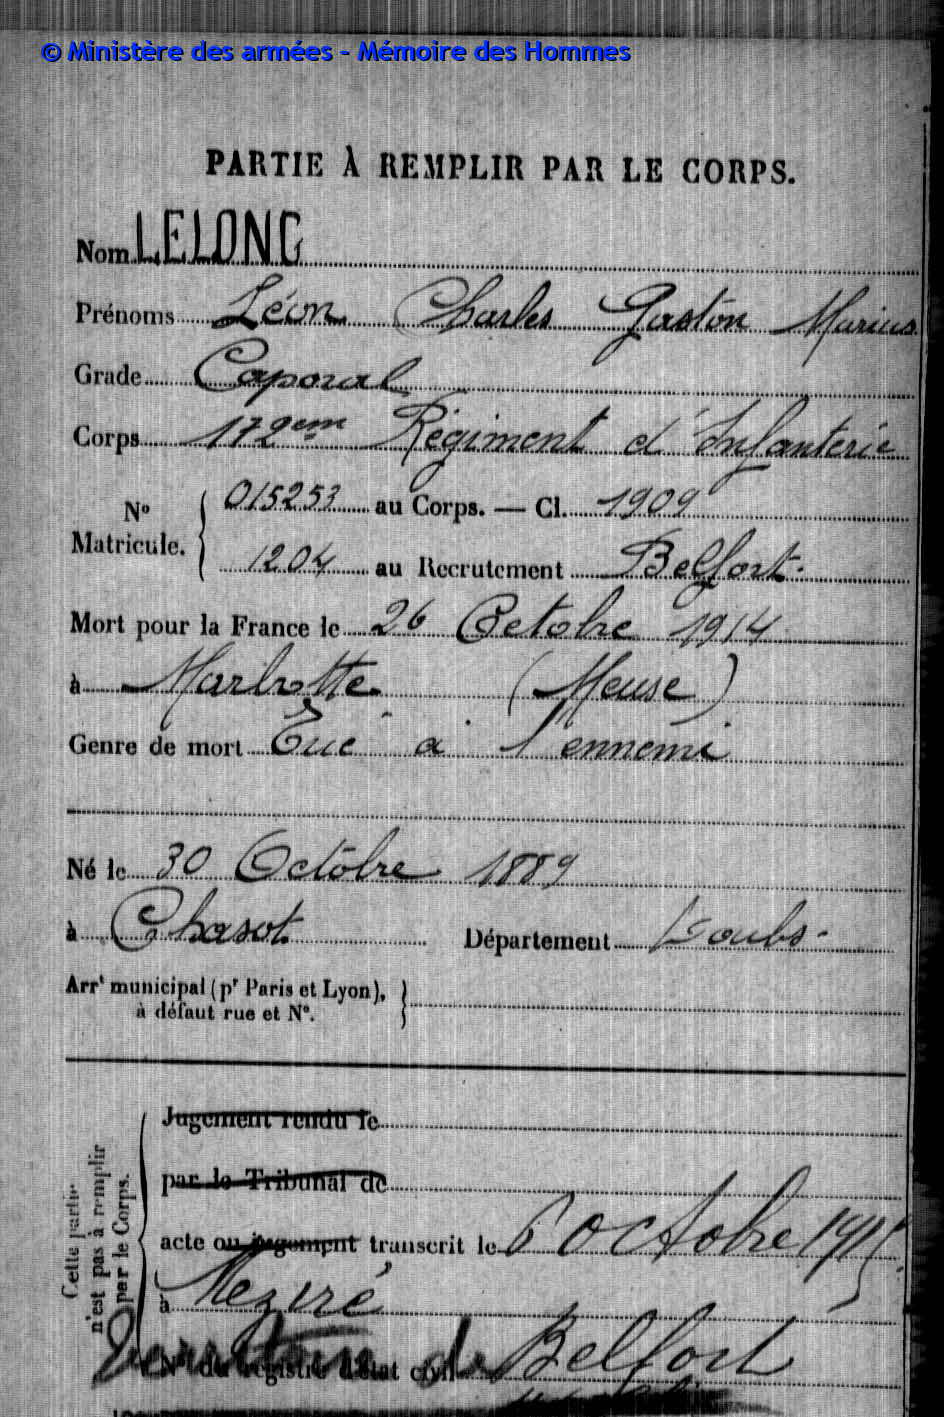 © Ministère des armées - Mémoire des Hommes
PARTIE À REMPLIR PAR LE CORPS.
Nom LELONG
Prénoms Léon Charles Gaston Marius
Grade Caporal
Corps 172eme Régiment d'Infanterie
N° Matricule. 015253 au Corps. — Cl. 1909
1204 au Recrutement Belfort.
Mort pour la France le 26 Octobre 1914
à Marbotte (Meuse)
Genre de mort Tué à l'ennemi
Né le 30 Octobre 1889
à Chasot Département Doubs.
Arrt municipal (pr Paris et Lyon),
à défaut rue et N°.
Cette partie n'est pas à remplir par le Corps.
Jugement rendu le
par le Tribunal de
acte ou jugement transcrit le 6 octobre 1915
à Meziré
Territoire de Belfort
N° du registre d'état civil